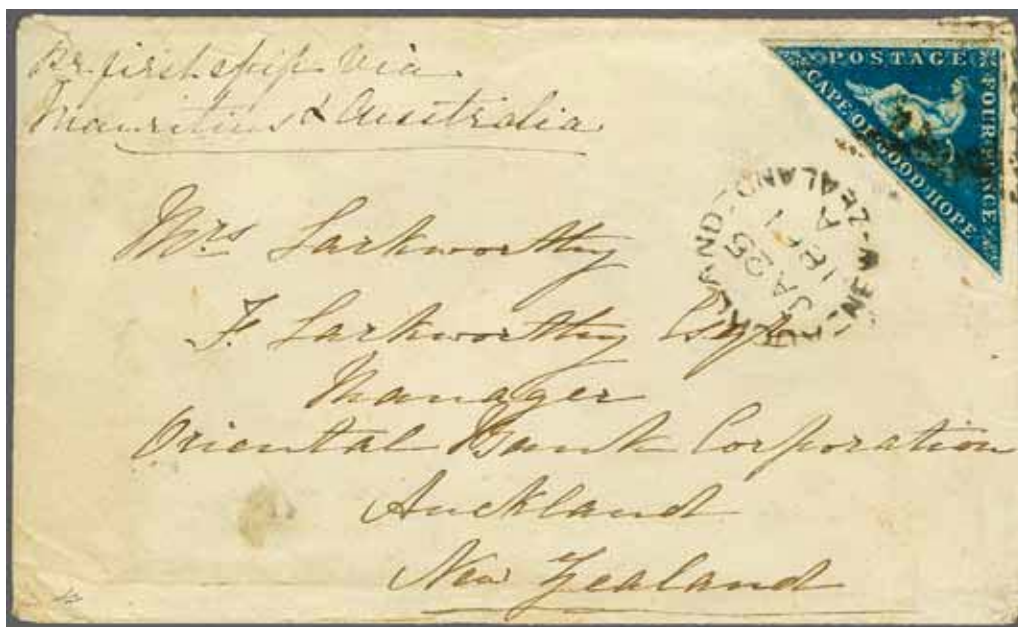 Pr. first ship via
Mauritius & Australia
POSTAGE
CAPE OF GOOD HOPE
FOUR PENCE
AUCKLAND
NEW-ZEALAND
JA 25
1861
A
Mrs Larkworthy
F. Larkworthy Esqr
Manager
Oriental Bank Corporation
Auckland
New Zealand